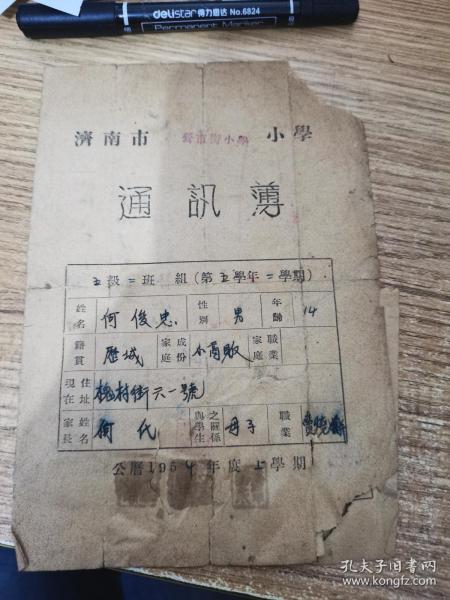 delistar 得力思达 No.6824
Permanent Marker
濟南市 小學
通訊薄
五級二班 組(第五學年一學期)
姓名 何俊忠 性別 男 年齡 14
籍貫 歷城 家庭成份 小商販 家庭職業
現在住址 槐村街六一號
家長姓名 衛氏 與學生之關係 母子 職業
公曆1954年度上學期
孔夫子旧书网
www.kongfz.com